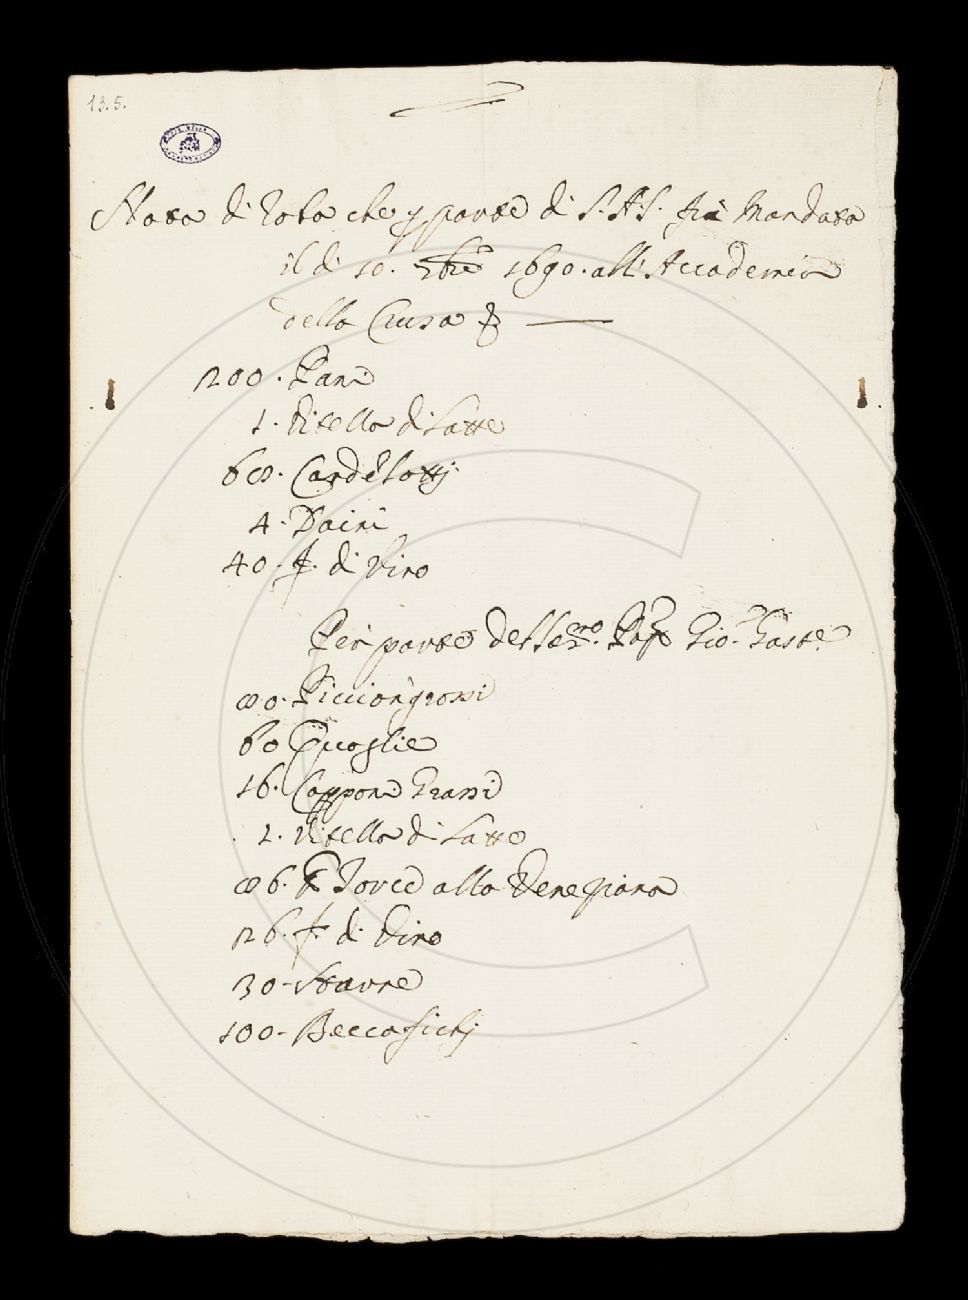 13.5.
Nota di Roba che p parte di S.A.S. fù Mandata
il dì 10. 7bre 1690. all'Accademia
della Crusa
200. Pani
1. Vitella di Latte
60. Cardelotti
4. Daini
40. f. di Vino
Per parte del Ser.mo Pnpe Gio. Gast.e
80. Piccion grossi
60 Quaglie
16. Capponi Grassi
1. Vitella di Latte
86. alla Veneziana
26. f. di Vino
30. Starne
100. Beccafichi